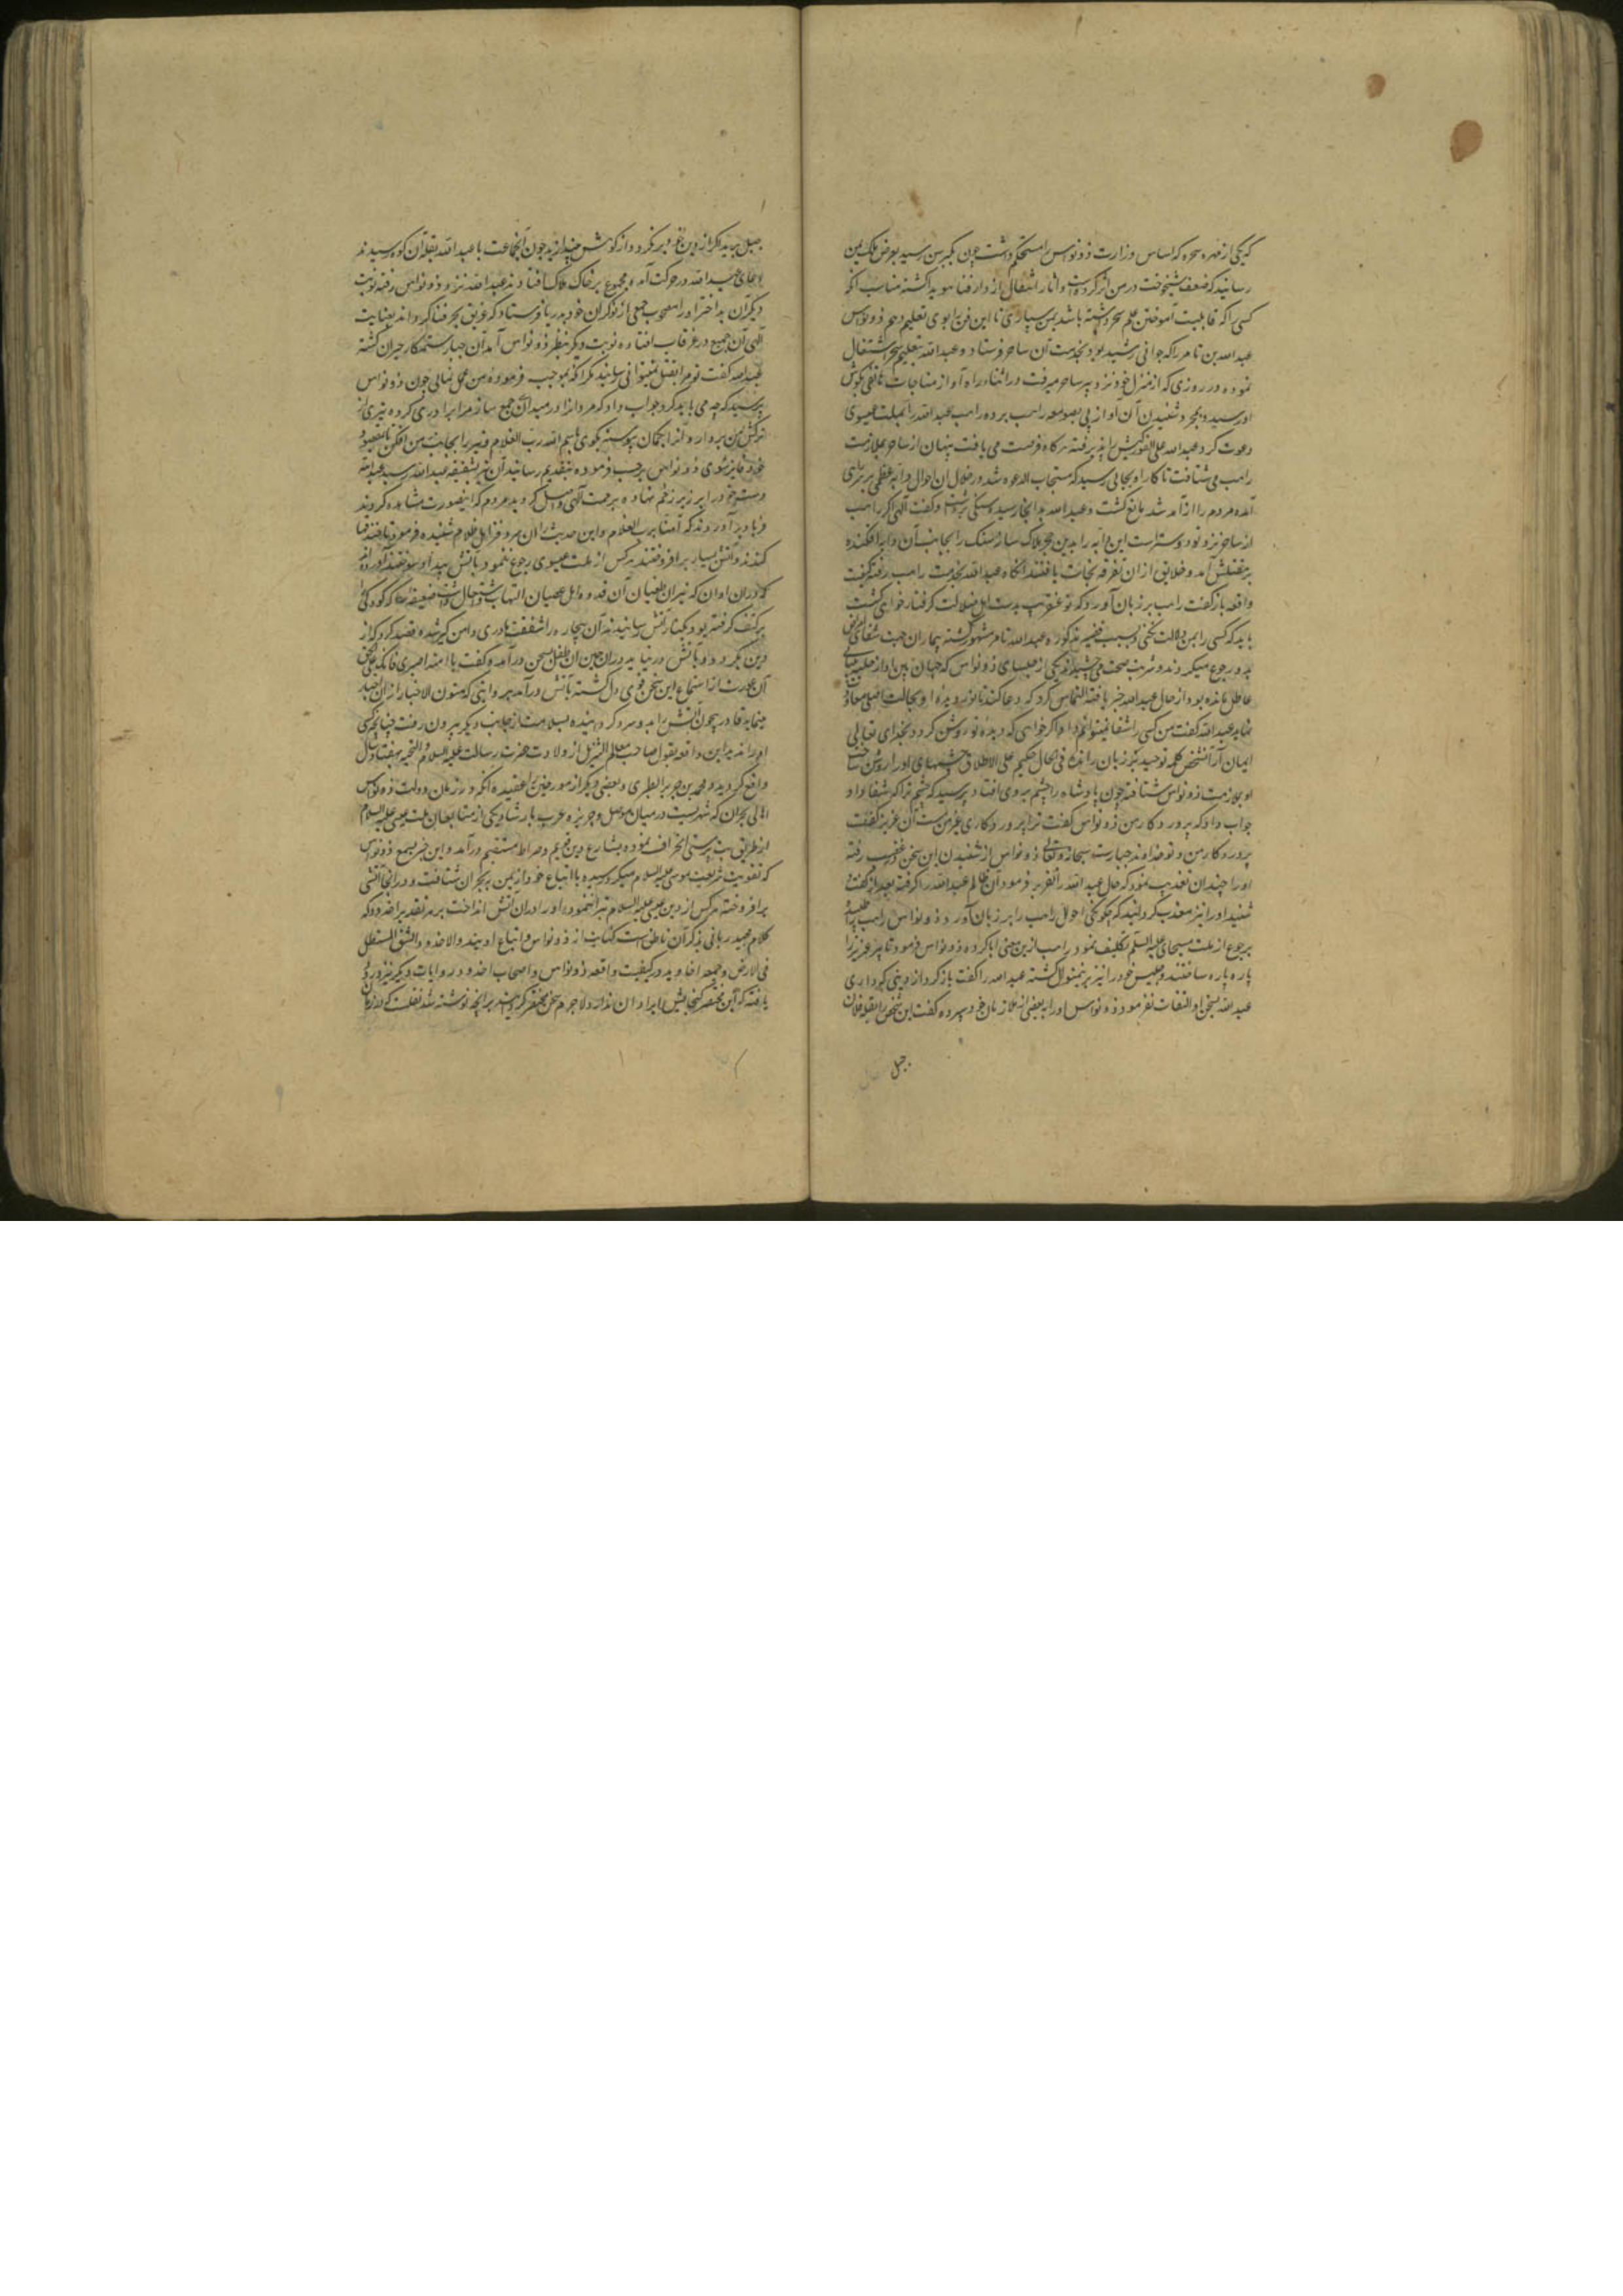 که یکی از مهره سحره که اساس وزارت ذونواس را مستحکم داشت چون بکبر سن رسید بعرض ملک یمن
رسانید که ضعف شیخوخت در من اثر کرده است و آثار انتقال از دار فنا هویدا گشته مناسب آنکه
کسی را که قابلیت آموختن علم سحر داشته باشد بمن سپاری تا این فن را بوی تعلیم دهم ذونواس
عبدالله بن تامر را که جوانی رشید بود بخدمت آن ساحر فرستاد و عبدالله بتعلیم سحر اشتغال
نموده در روزی که از منزل خود نزد پیر ساحر میرفت در اثناء راه آواز مناجات بگوش
او رسید و بمجرد شنیدن آن آواز پی بصومعه راهب برده راهب عبدالله را بملت عیسوی
دعوت کرد و عبدالله علی الفور کیش پذیرفته هرگاه فرصت می یافت پنهان از ساحر بملازمت
راهب می شتافت تا کار او بجایی رسید که مستجاب الدعوه شد در خلال آن احوال دابه عظمی بر سر راهی
آمده مردم را از آمد شد مانع گشت و عبدالله بدانجا رسید و سنگی برداشت و گفت الهی اگر راهب
از ساحر نزد تو دوستر است این دابه را بدین حجر هلاک ساز سنگ را بجانب آن دابه افکنده
بر مقتلش آمد و خلایق از آن تفرقه نجات یافتند آنگاه عبدالله بخدمت راهب رفته کیفیت
واقعه بازگفت راهب بر زبان آورد که تو عنقریب بدست اهل ضلالت گرفتار خواهی گشت
باید که کسی را بمن دلالت نکنی و بسبب قضیه مذکوره عبدالله تامر مشهور گشته بیماران جهت شفای
بدو رجوع میکردند و شربت صحت می چشیدند و یکی از جلسای ذونواس که جهان بین او از حلیه
عاطل مانده بود از حال عبدالله خبر یافته التماس کرد که دعا کند تا نور دیده او بحالت اصلی معاودت
نماید عبدالله گفت من کسی را شفا نمیتوانم داد اگر خواهی که دیده تو روشن گردد بخدای تعالی
ایمان آر آن شخص کلمه توحید بر زبان رانده فی الحال حکیم علی الاطلاق چشمهای او را روشن ساخت
او بملازمت ذونواس شتافته چون پادشاه را چشم بر وی افتاد پرسید که چشم ترا که شفا داد
جواب داد که پروردگار من ذونواس گفت ترا پروردگاری غیر من است آن عزیز گفت
پروردگار من و تو خداوند جبار است سبحانه و تعالی ذونواس از شنیدن این سخن در غضب رفته
او را چندان تعذیب نمود که حال عبدالله را تقریر فرمود آن ظالم عبدالله را گرفته بعد از گفت و
شنید او را نیز معذب گردانید که چگونگی احوال راهب را بر زبان آورد و ذونواس راهب را طلبیده
برجوع از ملت مسیحا علیه السلم تکلیف نمود راهب ازین معنی ابا کرده ذونواس فرمود تا پیر عزیز را
پاره پاره ساختند و جلیس خود را نیز برین منوال کشته عبدالله را گفت بازگرد از دینی که داری
عبدالله بسخن او التفات نفرمود ذونواس او را به بعضی از ملازمان خود سپرده گفت این شخص را بقله فلان
جبل
جبل برید اگر از دین خود برنگردد از کوهش بیندازید چون آنجماعت با عبدالله بقله آن کوه رسیدند
بدعای عبدالله در حرکت آمده مجموع بر خاک هلاک افتادند عبدالله نزد ذونواس رفته نوبت
دیگر آن بداختر او را مصحوب جمعی از نوکران خود بدریا فرستاد که غریق بحر فنا گردانند بعنایت
الهی آن جمیع در غرقاب افتاده نوبت دیگر بنظر ذونواس آمد آن جبار ستمکار حیران گشته
عبدالله گفت تو مرا بقتل نمیتوانی رسانید مگر آنکه بموجب فرموده من عمل نمایی چون ذونواس
پرسید که چه می باید کرد جواب داد که مردم را در میدان جمع ساز و مرا بردار کرده تیری از
ترکش من بردار و آنرا بکمان پیوسته بگوی باسم الله رب الغلام و تیر را بجانب من افکن تا بمقصود
خود فایز شوی ذونواس بموجب فرموده بتقدیم رسانید آن تیر بشقیقه عبدالله رسید عبدالله
دست خود را بر زبر زخم نهاده برحمت الهی واصل گردید مردم که اینصورت مشاهده کردند
فریاد برآوردند که آمنا برب الغلام و این حدیث آن سر دفتر اهل ظلام شنیده فرمود تا خندقها
کندند و آتش بسیار برافروختند هرکس از ملت عیسوی رجوع ننمود بآتش بیداد سوختند آورده اند
که در آن اوان که نیران طغیان آن قدوه اهل عصیان التهاب و اشتعال داشت ضعیفه را که کودکی
بر کتف گرفته بود بکنار آتش رسانیدند آن بیچاره را شفقت مادری دامن گیر شده قصد کرد که از
دین برگردد و بآتش درنیاید در آن حین آن طفل بسخن درآمده گفت یا امه اصبری فانک علی الحق
آن عورت از استماع این سخن قوی دل گشته بآتش درآمد و روایتی که متون الاخبار از آن اخبار
مینماید قادر بیچون آتش را بدو سرد گردانیده بسلامت از جانب دیگر بیرون رفت چنانچه کسی
او را ندید این واقعه بقول صاحب معالم التنزیل از ولادت حضرت رسالت علیه السلام و التحیه بهفتاد سال
واقع گردید و محمد بن جریر الطبری و بعضی دیگر از مورخین را عقیده آنکه در زمان دولت ذونواس
اهالی نجران که شهریست در میان موصل و جزیره عرب بارشاد یکی از متابعان ملت عیسی علیه السلام
از طریق بت پرستی انحراف نموده بشارع دین قویم و صراط مستقیم درآمدند و این خبر بسمع ذونواس
که تقویت شریعت موسی علیه السلام میکرد رسیده با اتباع خود از یمن به نجران شتافت و در آنجا آتشی
برافروخته هرکس از دین عیسی علیه السلام تبرا ننمود او را در آن آتش انداخت بر هر تقدیر اخدود که
کلام مجید ربانی بذکر آن ناطق است کنایت از ذونواس و اتباع اویند والاخدود الشق المستطیل
فی الارض و جمعه اخادید و در کیفیت واقعه ذونواس و اصحاب اخدود روایات دیگر نیز ورود
یافته که این مختصر گنجایش ایراد آن ندارد لاجرم سخن مختصر گردانیده بر آنچه نوشته شد